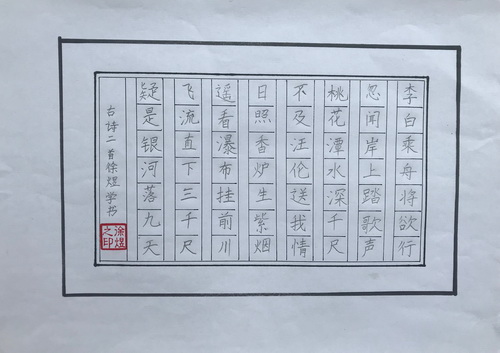 李白乘舟将欲行
忽闻岸上踏歌声
桃花潭水深千尺
不及汪伦送我情
日照香炉生紫烟
遥看瀑布挂前川
飞流直下三千尺
疑是银河落九天
古诗二首徐煜学书
徐煜之印